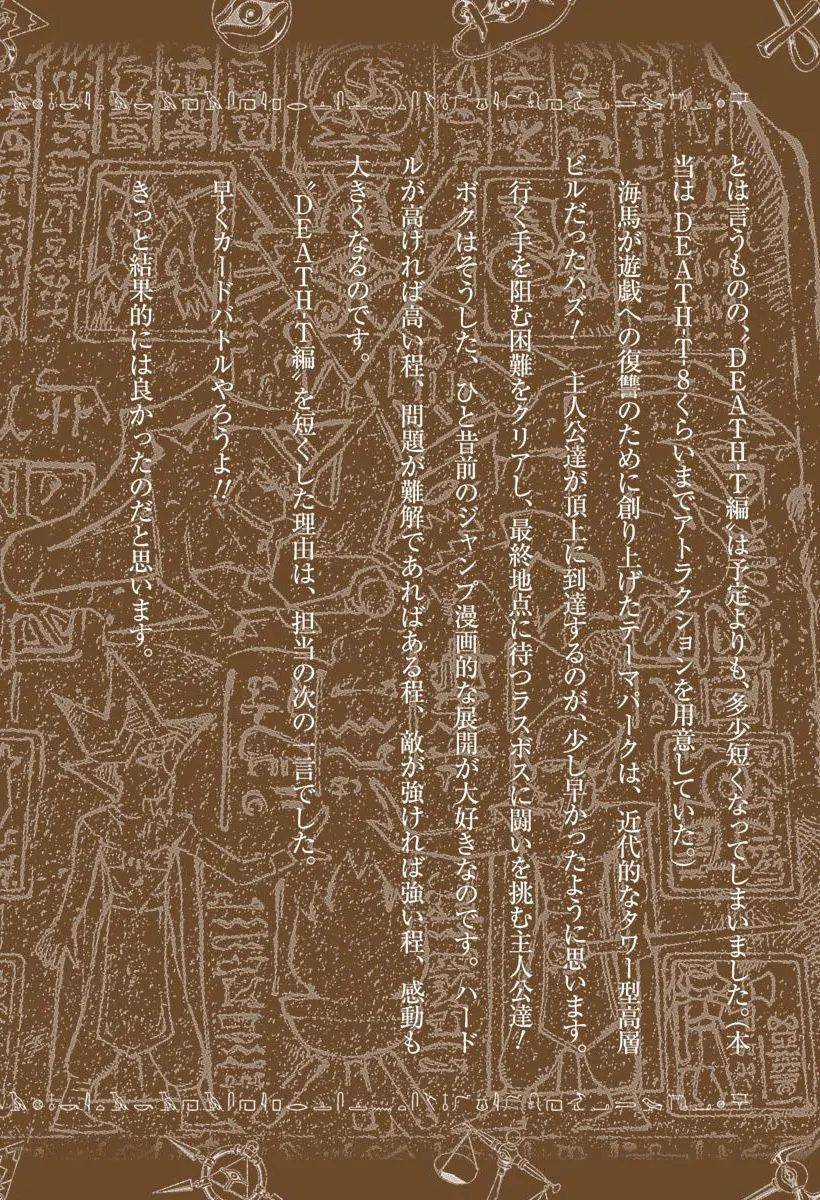 とは言うものの、〝DEATH-T編〟は予定よりも、多少短くなってしまいました。(本
当は DEATH-T-8くらいまでアトラクションを用意していた。)
海馬が遊戯への復讐のために創り上げたテーマパークは、近代的なタワー型高層
ビルだったハズ! 主人公達が頂上に到達するのが、少し早かったように思います。
行く手を阻む困難をクリアし、最終地点に待つラスボスに闘いを挑む主人公達!
ボクはそうした、ひと昔前のジャンプ漫画的な展開が大好きなのです。ハード
ルが高ければ高い程、問題が難解であればある程、敵が強ければ強い程、感動も
大きくなるのです。
〝DEATH-T編〟を短くした理由は、担当の次の一言でした。
早くカードバトルやろうよ!!
きっと結果的には良かったのだと思います。